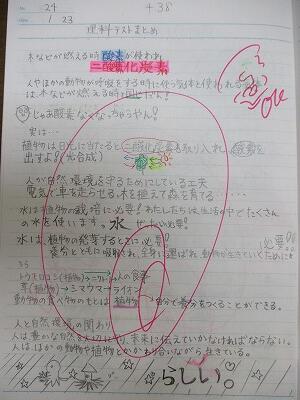 24 +38
1 23
理科テストまとめ
木などが燃える時酸素が使われ
二酸化炭素
人やほかの動物が呼吸をする時に使う気体と使われる
は、木などが燃える時と同じだ!
じゃあ酸素なくなっちゃうやん!
実は…
植物は日光に当たると二酸化炭素を取り入れ、酸素を
出すよ!(光合成)
人が自然環境を守るためにしている工夫
電気で車を走らせる、木を植えて森を育てる……
水は植物の栽培に必要!わたしたちは生活の中でたくさん
の水を使います。水ぜったい必要!
水は、植物の発芽するときに必要!
養分とともに吸収され、全身に運ばれ、動物が生きていくために必要!
トウモロコシ(植物)→ニワトリ→人の食事
草(植物)→シマウマ→ライオン
動物の食べ物のもとは植物→自分で養分をつくることができる。
人と自然環境の関わり
人は、豊かな自然を大切に守り、未来に伝えていかなければならない。
人はほかの動物や植物とかかわり合いながら、生きている。
らしい。